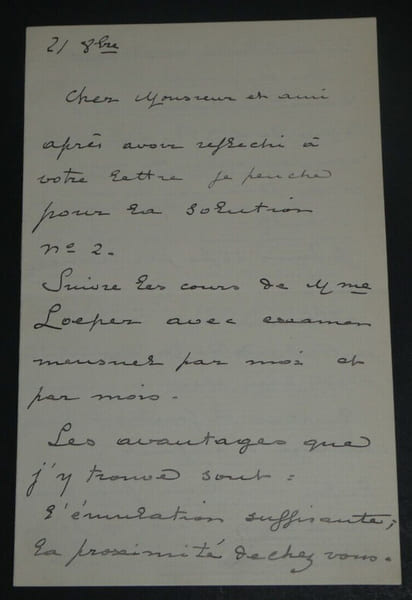 21 8bre
Cher Monsieur et ami
après avoir réflechi à
votre lettre je penche
pour la solution
no 2.
Suivre les cours de Mme
Loeper avec examen
mensuel par moi et
par mois.
Les avantages que
j'y trouve sont :
l'émulation suffisante;
la proximité de chez vous.